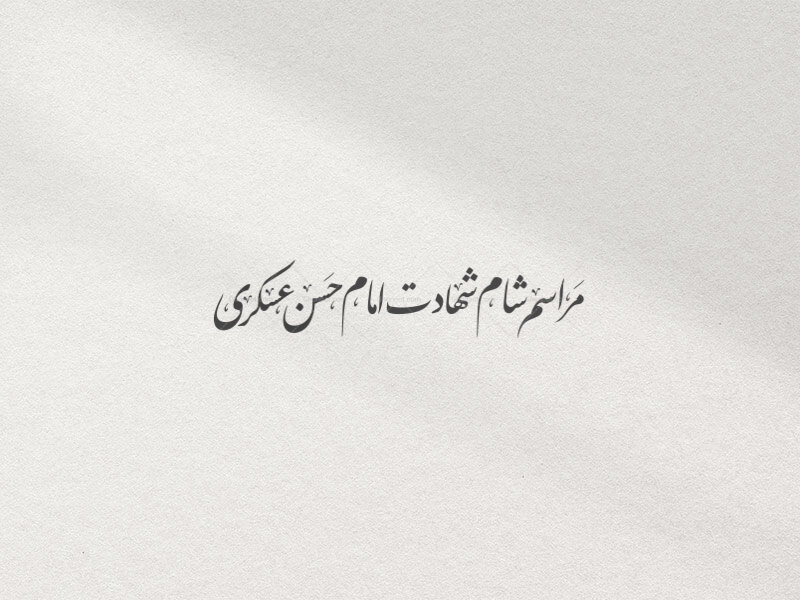 مراسم شام شهادت امام حسن عسکری